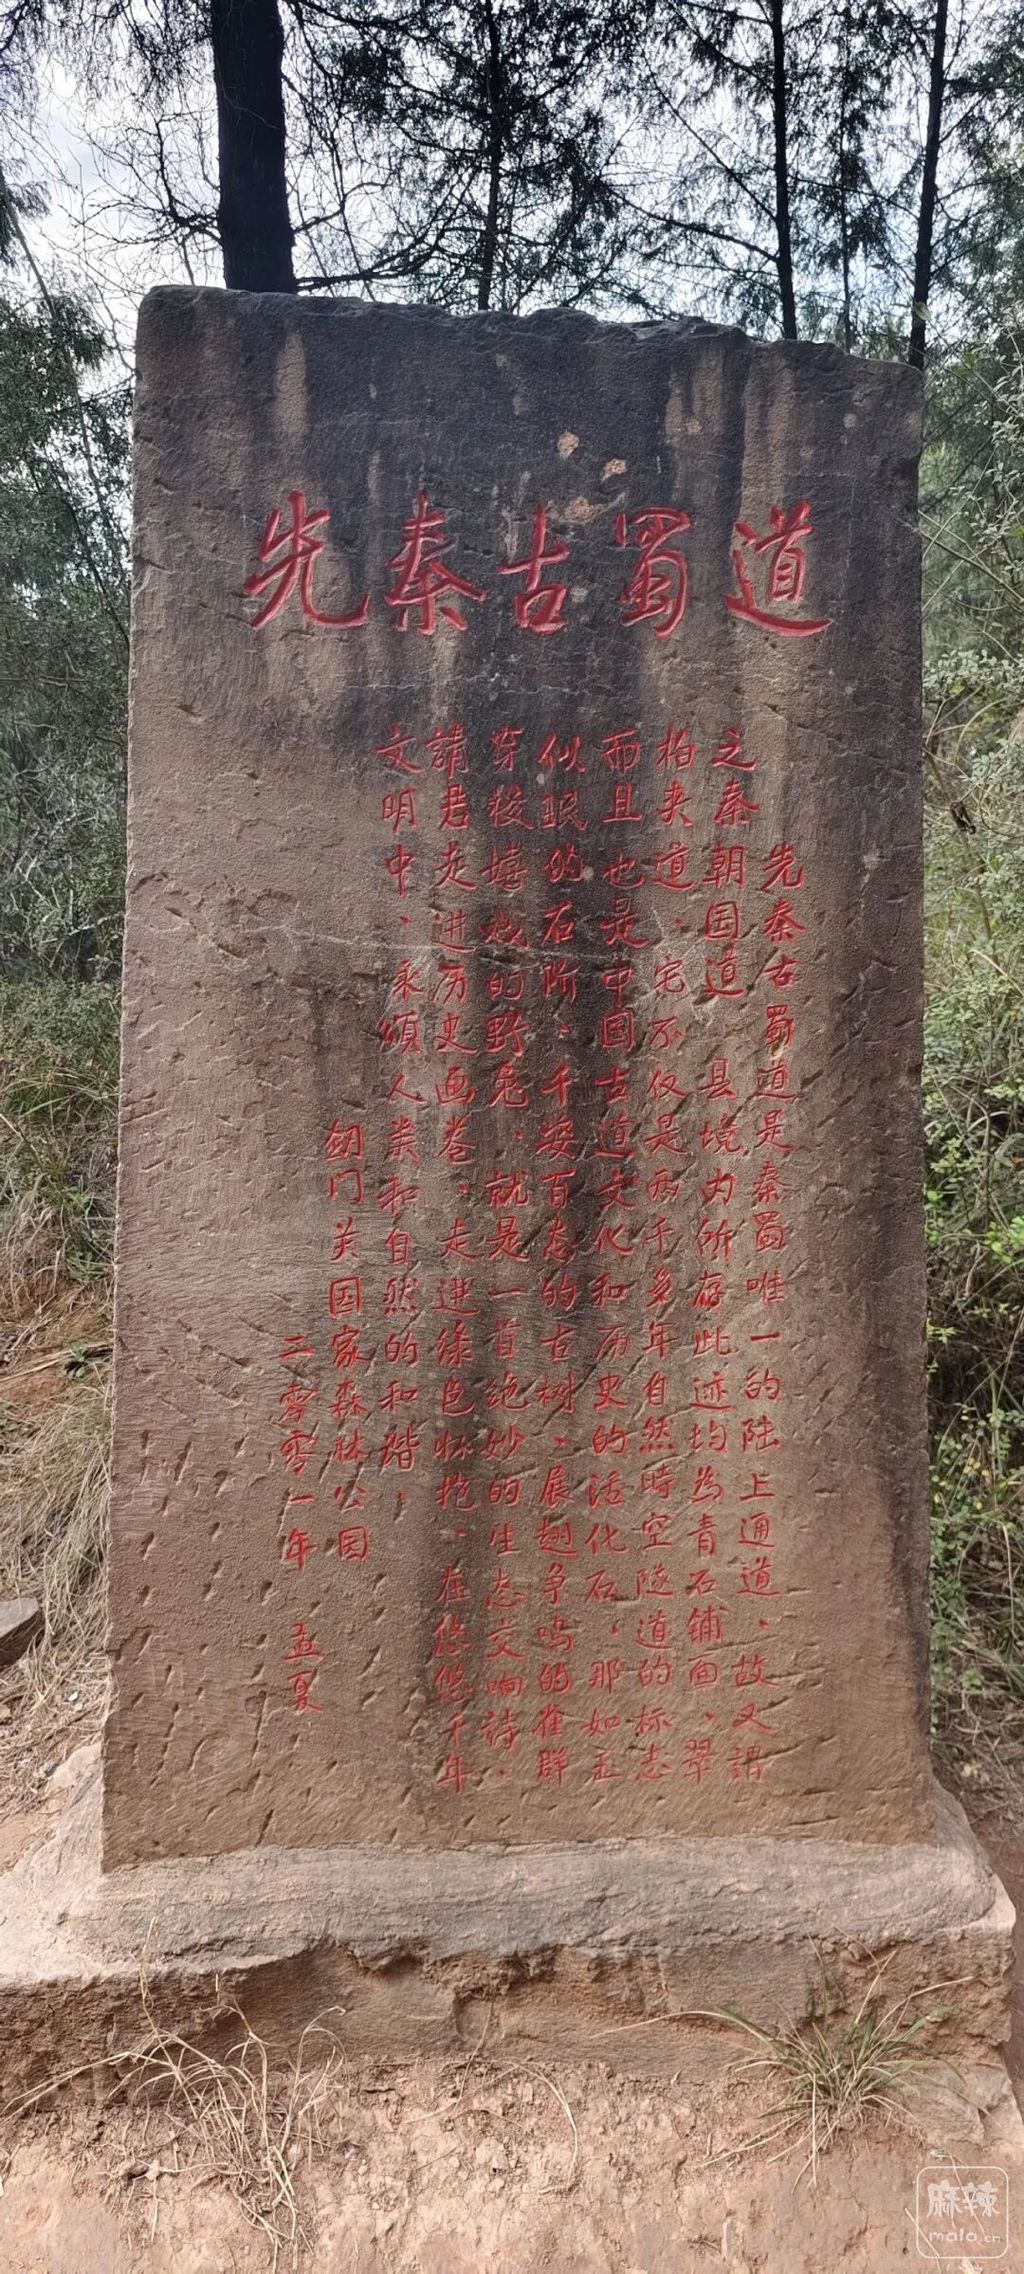 先秦古蜀道
先秦古蜀道是秦蜀唯一的陆上通道、故又謂
之秦朝国道 县境内所存此迹均為青石铺面、翠
柏夹道、它不仅是两千多年自然時空隧道的标志
而且也是中国古道文化和历史的活化石,那如玉
似珉的石阶、千姿百态的古树、展翅争鸣的雀群
穿梭嬉戏的野兔、就是一首绝妙的生态交响诗,
請君走进历史画卷、走進绿色怀抱、在悠悠千年
文明中、来颂人类和自然的和谐,
剑门关国家森林公园
二零零一年 孟夏
麻辣
mala.cn